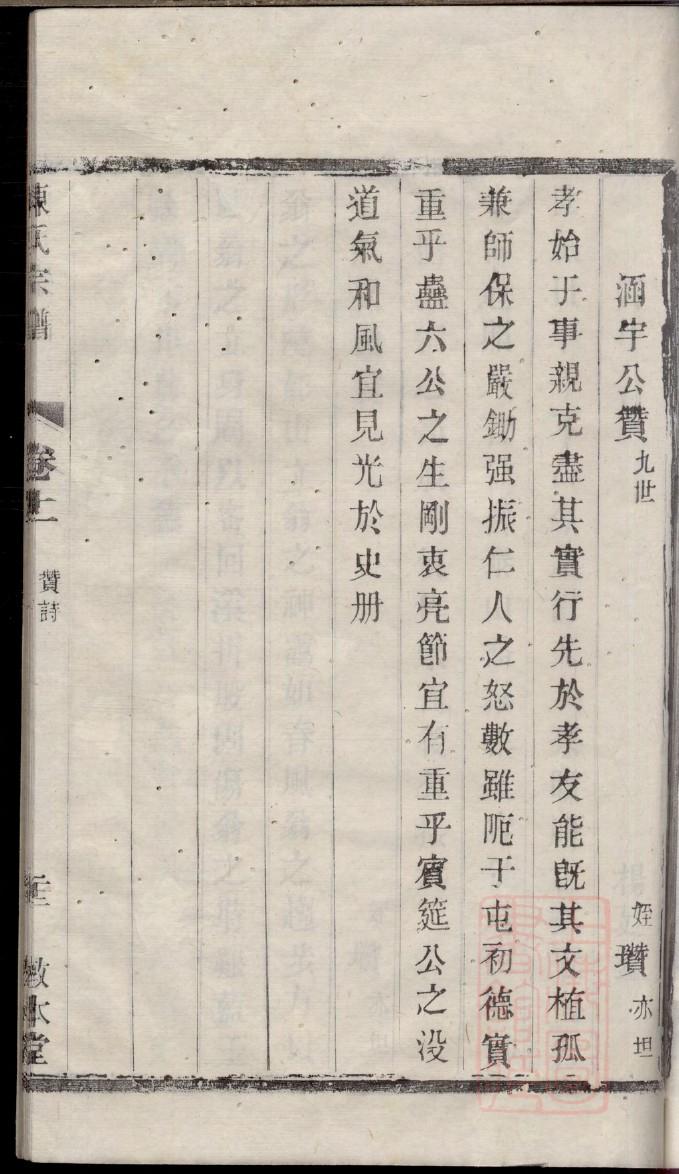 涵宇公贊 九世
姪瓚 亦坦
孝始于事親克盡其實行先於孝友能旣其文植孤
兼師保之嚴鋤强振仁人之怒數雖阨于屯初德實
重乎蠱六公之生剛衷亮節宜有重乎賓筵公之没
道氣和風宜見光於史册
陳氏宗譜
卷十
贊詩
敬本堂